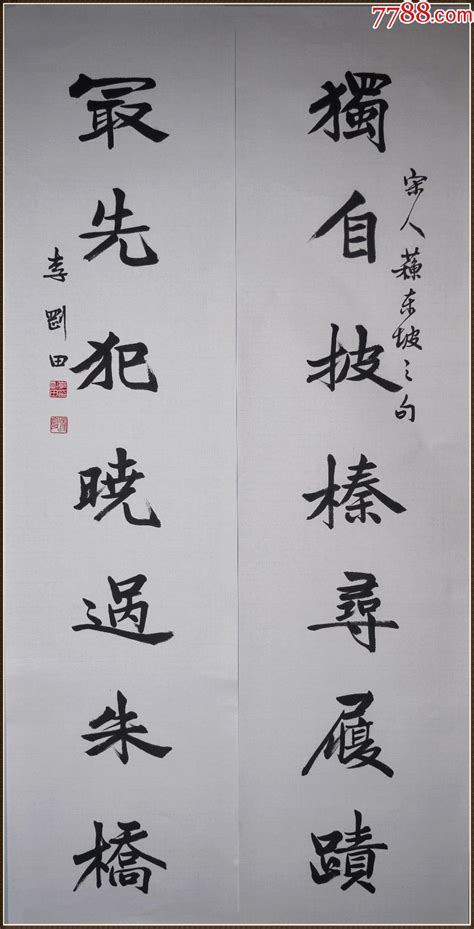 7788.com
獨自披榛尋履蹟
宋人蘓东坡之句
冣先犯晓過朱橋
李剛田